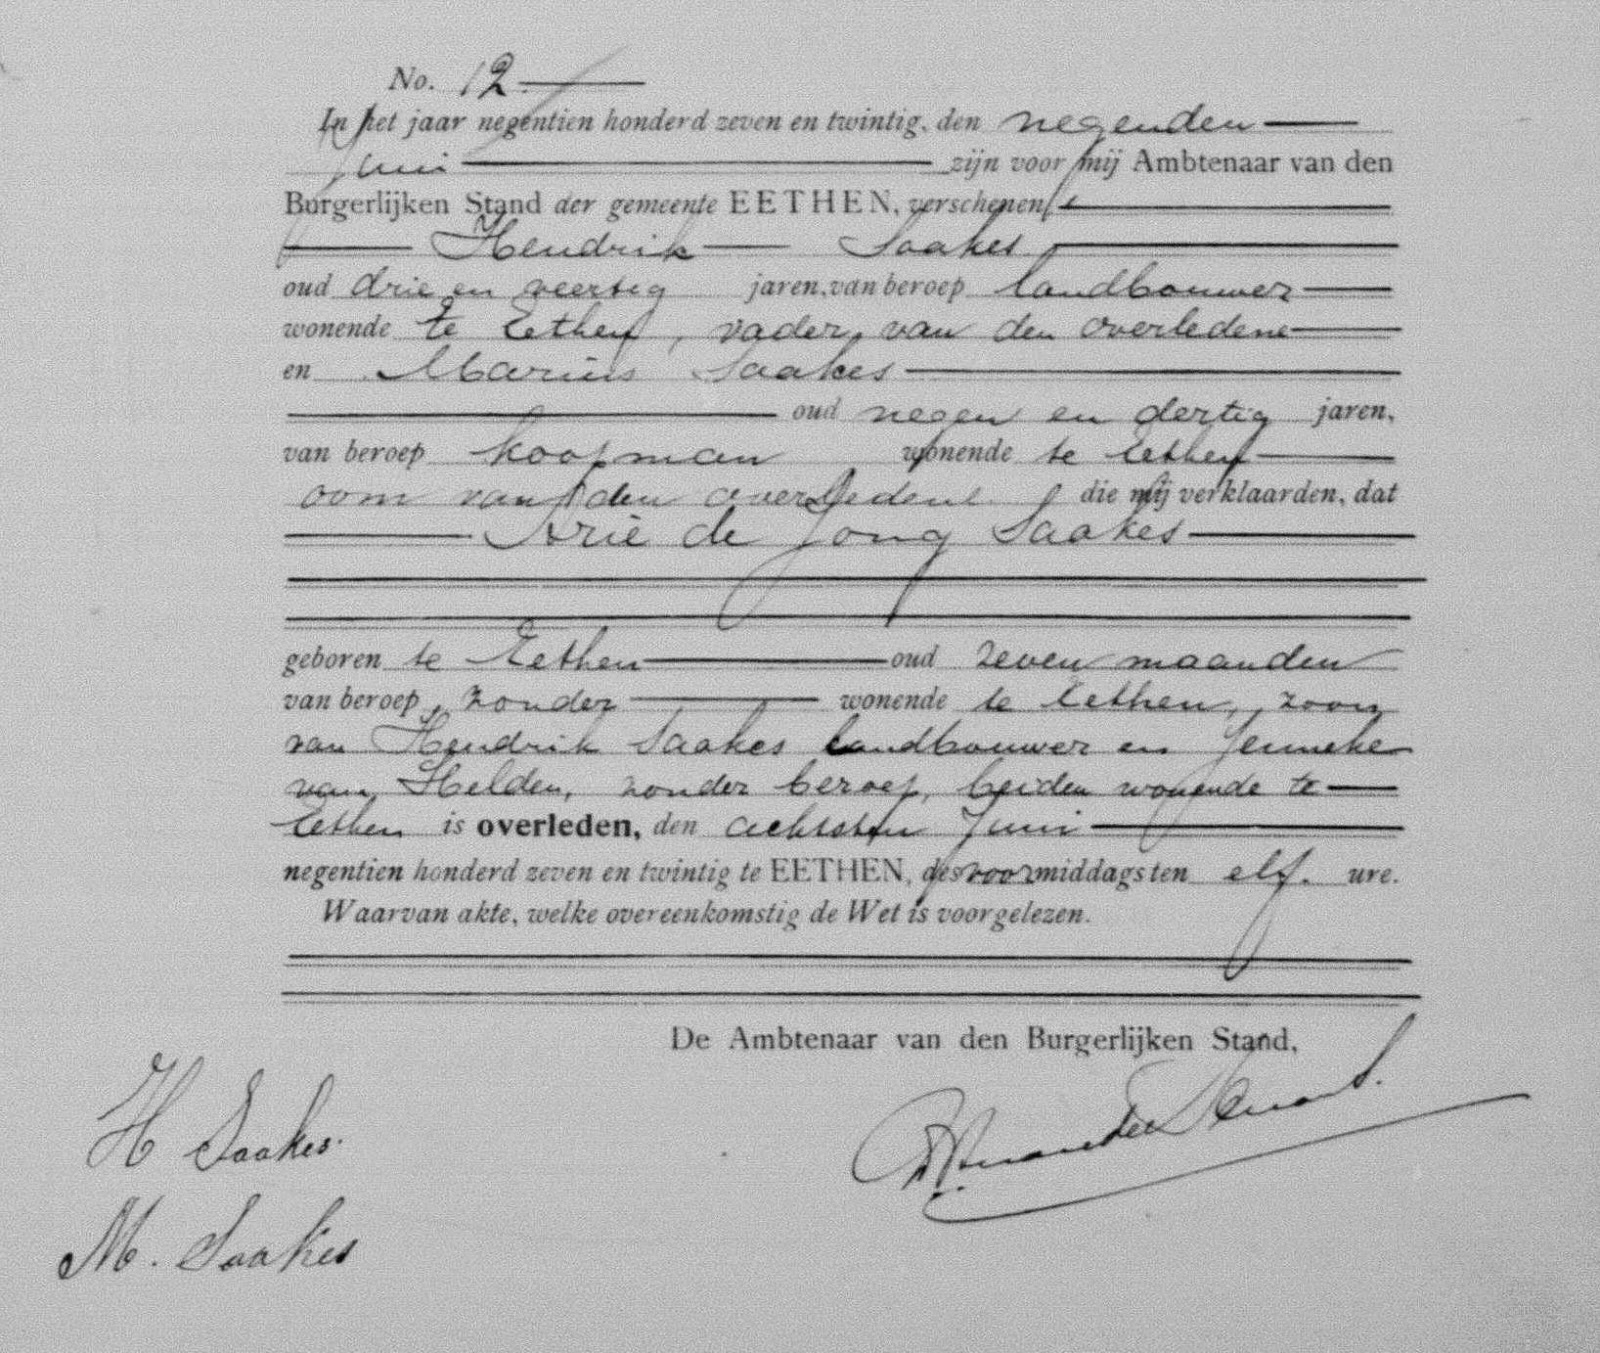 No. 12.
In het jaar negentien honderd zeven en twintig, den negenden
Juni zijn voor mij Ambtenaar van den
Burgerlijken Stand der gemeente EETHEN, verschenen:
Hendrik Saakes
oud drie en veertig jaren, van beroep landbouwer
wonende te Eethen, vader van den overledene
en Marinus Saakes
oud negen en dertig jaren,
van beroep koopman wonende te Eethen
oom van den overledene die mij verklaarden, dat
Arie de Jong Saakes
geboren te Eethen oud zeven maanden
van beroep zonder wonende te Eethen, zoon
van Hendrik Saakes landbouwer en Jenneke
van Helden, zonder beroep, beiden wonende te
Eethen is overleden, den achtsten Juni
negentien honderd zeven en twintig te EETHEN, des voormiddags ten elf ure.
Waarvan akte, welke overeenkomstig de Wet is voorgelezen.
De Ambtenaar van den Burgerlijken Stand,
H Saakes.
M. Saakes